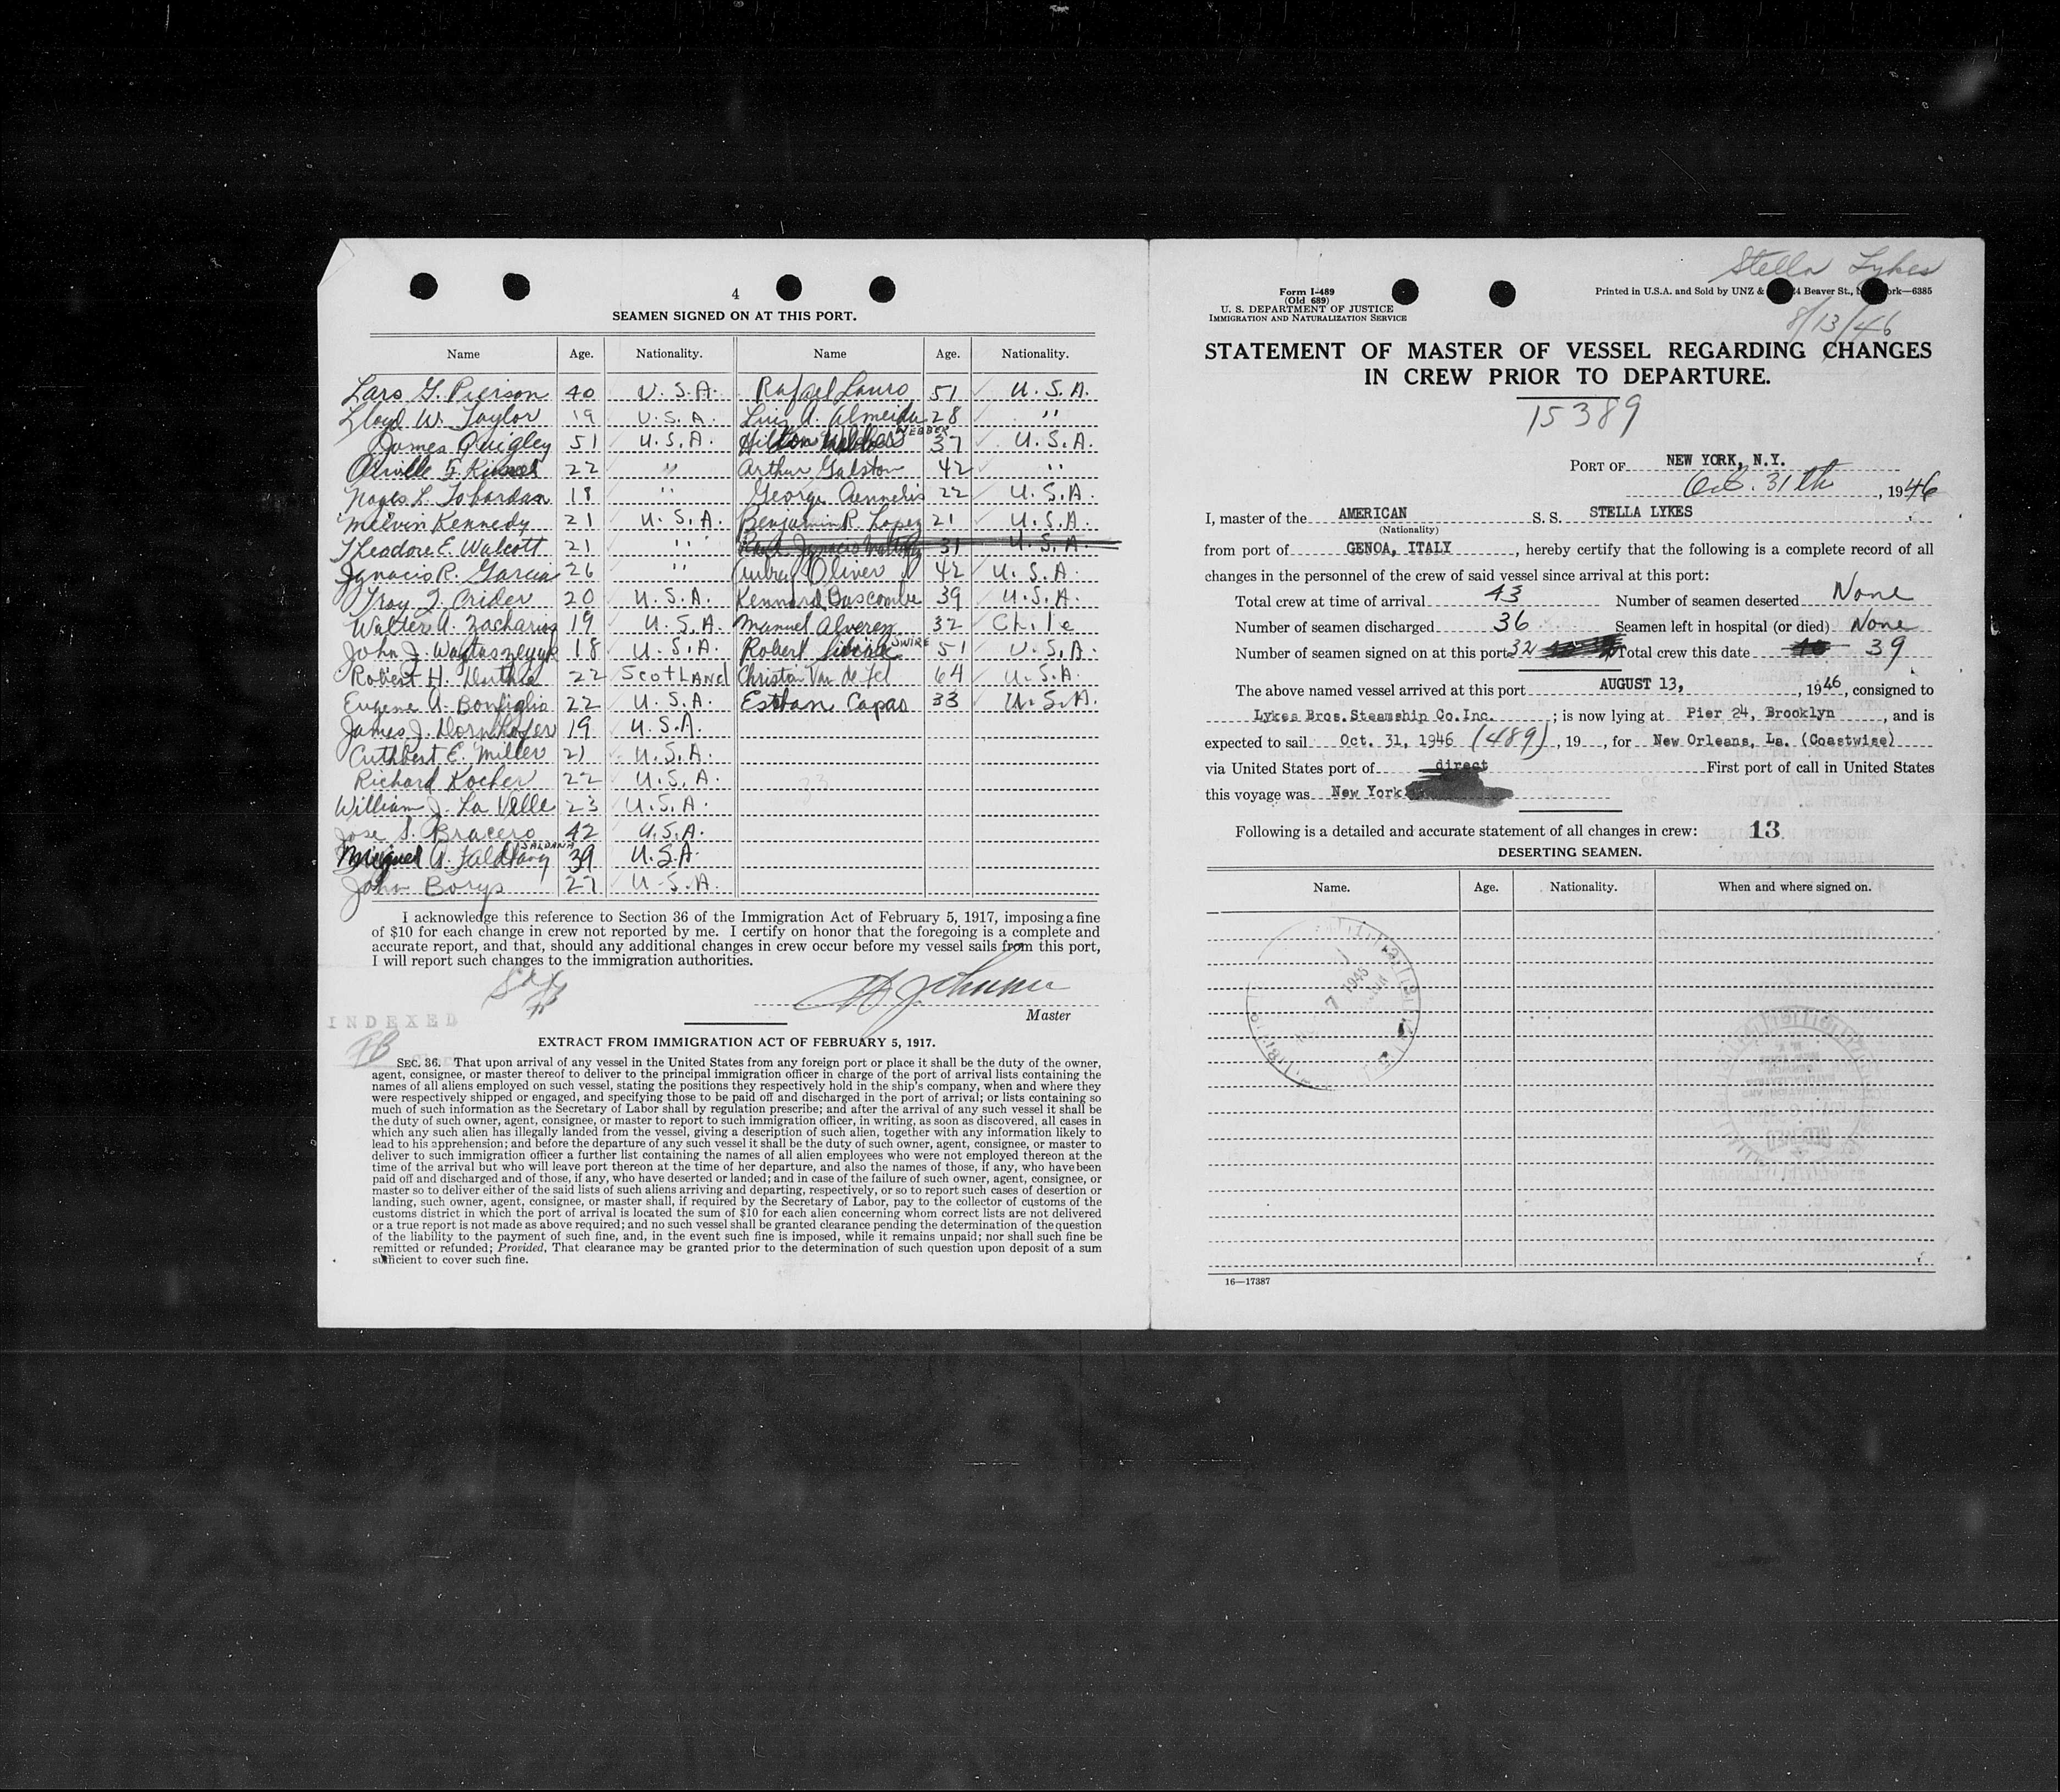 4
SEAMEN SIGNED ON AT THIS PORT.
Name Age. Nationality. Name Age. Nationality.
Lars G. Pierson 40 U.S.A. Rafael Lauro 51 U.S.A.
Lloyd W. Taylor 19 U.S.A. Luis A. Almeida 28 "
James Quigley 51 U.S.A. Hilton WEBBER 37 U.S.A.
Orville F. 22 " Arthur Galston 42 "
L. 18 " George 22 U.S.A.
Melvin Kennedy 21 U.S.A. Benjamin R. Lopez 21 U.S.A.
Theodore E. Walcott 21 " Ignacio 31 U.S.A.
Ygnacio R. Garcia 26 " Aubrey Oliver 42 U.S.A.
Troy J. Crider 20 U.S.A. Kennard Bascombe 39 U.S.A.
Walter A. Zacharias 19 U.S.A. Manuel Alverez 32 Chile
John J. 18 U.S.A. Robert SWIRE 51 U.S.A.
Robert H. 22 Scotland Christian Van de Fel 64 U.S.A.
Eugene A. Bonfiglio 22 U.S.A. Estban Capas 33 U.S.A.
James J. Dornhofer 19 U.S.A.
Cuthbert E. Miller 21 U.S.A.
Richard Kocher 22 U.S.A.
William J. La Valle 23 U.S.A.
Jose S. Bracero 42 U.S.A.
Miguel A. SALDANA 39 U.S.A
John Borys 27 U.S.A.
I acknowledge this reference to Section 36 of the Immigration Act of February 5, 1917, imposing a fine
of $10 for each change in crew not reported by me. I certify on honor that the foregoing is a complete and
accurate report, and that, should any additional changes in crew occur before my vessel sails from this port,
I will report such changes to the immigration authorities.
Master
INDEXED
EXTRACT FROM IMMIGRATION ACT OF FEBRUARY 5, 1917.
SEC. 36. That upon arrival of any vessel in the United States from any foreign port or place it shall be the duty of the owner,
agent, consignee, or master thereof to deliver to the principal immigration officer in charge of the port of arrival lists containing the
names of all aliens employed on such vessel, stating the positions they respectively hold in the ship's company, when and where they
were respectively shipped or engaged, and specifying those to be paid off and discharged in the port of arrival; or lists containing so
much of such information as the Secretary of Labor shall by regulation prescribe; and after the arrival of any such vessel it shall be
the duty of such owner, agent, consignee, or master to report to such immigration officer, in writing, as soon as discovered, all cases in
which any such alien has illegally landed from the vessel, giving a description of such alien, together with any information likely to
lead to his apprehension; and before the departure of any such vessel it shall be the duty of such owner, agent, consignee, or master to
deliver to such immigration officer a further list containing the names of all alien employees who were not employed thereon at the
time of the arrival but who will leave port thereon at the time of her departure, and also the names of those, if any, who have been
paid off and discharged and of those, if any, who have deserted or landed; and in case of the failure of such owner, agent, consignee, or
master so to deliver either of the said lists of such aliens arriving and departing, respectively, or so to report such cases of desertion or
landing, such owner, agent, consignee, or master shall, if required by the Secretary of Labor, pay to the collector of customs of the
customs district in which the port of arrival is located the sum of $10 for each alien concerning whom correct lists are not delivered
or a true report is not made as above required; and no such vessel shall be granted clearance pending the determination of the question
of the liability to the payment of such fine, and, in the event such fine is imposed, while it remains unpaid; nor shall such fine be
remitted or refunded; Provided, That clearance may be granted prior to the determination of such question upon deposit of a sum
sufficient to cover such fine.
Stella Lykes
Form I-489
(Old 689)
U. S. DEPARTMENT OF JUSTICE
IMMIGRATION AND NATURALIZATION SERVICE
Printed in U.S.A. and Sold by UNZ & 4 Beaver St., ork—6385
8/13/46
STATEMENT OF MASTER OF VESSEL REGARDING CHANGES
IN CREW PRIOR TO DEPARTURE.
15389
PORT OF NEW YORK, N.Y.
Oct. 31th, 1946
I, master of the AMERICAN S. S. STELLA LYKES
(Nationality)
from port of GENOA, ITALY, hereby certify that the following is a complete record of all
changes in the personnel of the crew of said vessel since arrival at this port:
Total crew at time of arrival 43 Number of seamen deserted None
Number of seamen discharged 36 Seamen left in hospital (or died) None
Number of seamen signed on at this port 32 Total crew this date 39
The above named vessel arrived at this port AUGUST 13, , 1946, consigned to
Lykes Bros.Steamship Co.Inc. ; is now lying at Pier 24, Brooklyn , and is
expected to sail Oct. 31, 1946 (489) , 19 , for New Orleans, La. (Coastwise)
via United States port of direct First port of call in United States
this voyage was New York
Following is a detailed and accurate statement of all changes in crew: 13
DESERTING SEAMEN.
Name. Age. Nationality. When and where signed on.
16—17387